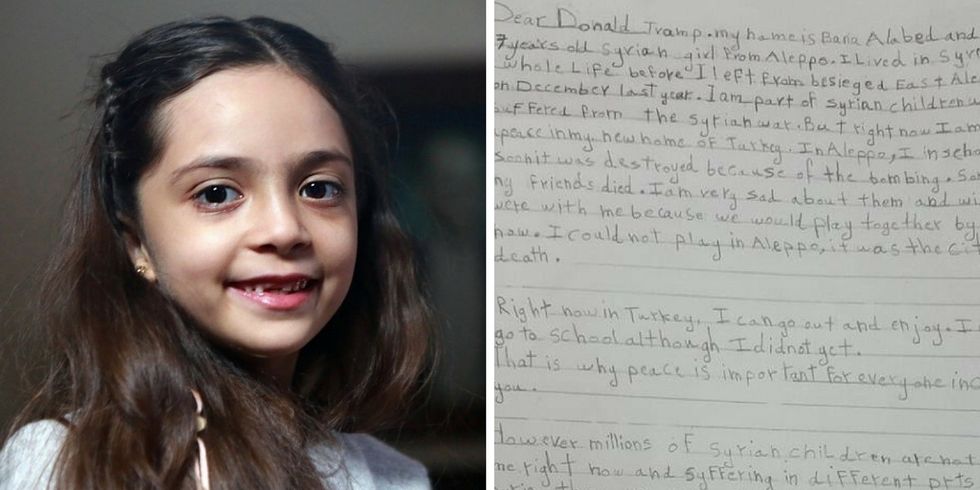 Dear Donald Tramp. my name is Bana Alabed and
7 years old Syrian girl from Aleppo. I Lived in Syr
whole Life before I left from besieged East Ale
on December last year. I am part of syrian children
suffered from the syrian war. But right now I am
peace in my new home of Turkey. In Aleppo, I in scho
soon it was destroyed because of the bombing. So
my friends died. I am very sad about them and wi
were with me because we would play together by
now. I could not play in Aleppo, it was the ci
death.
Right now in Turkey, I can go out and enjoy. I
go to school although I didnot yet.
That is why peace is important for everyone inc
you.
However millions of Syrian children are not
me right now and syffering in different prts